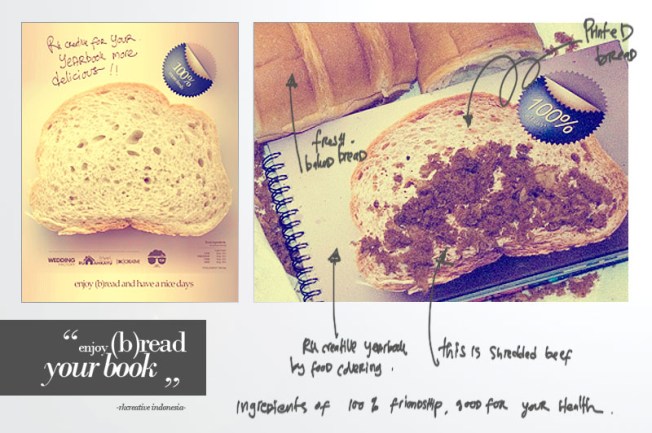 Rk creative for your
yearbook more
delicious !!
100%
WEDDING
enjoy (b)read and have a nice days
Printed
bread
100%
fresh
baked bread
Rk creative yearbook
by food covering .
this is shredded beef
Ingredients of 100% friendship, good for your health .
“ enjoy (b)read
your book ”
-rkcreative indonesia-